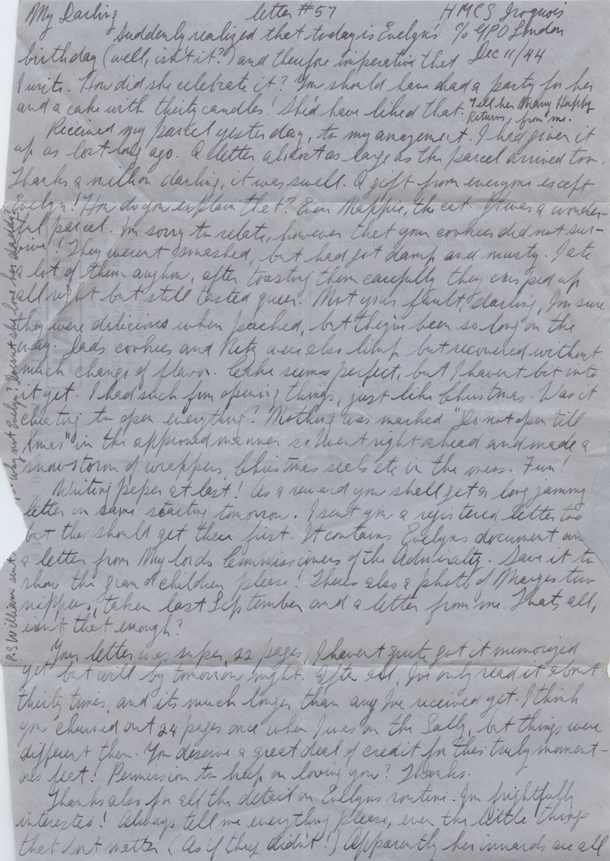 My Darling letter #57 HMCS Iroquois
Suddenly realized that today is Evelyns c/o GPO London
birthday (well, isn't it?) and therefore imperative that Dec 11/44
I write. How did she celebrate it? You should have had a party for her
and a cake with thirty candles! She'd have liked that. Tell her Many Happy
Returns from me.
Received my parcel yesterday, to my amazement. I had given it
up as lost long ago. A letter almost as large as the parcel arrived too.
Thanks a million darling, it was swell. A gift from everyone except
Evelyn! How do you explain that? Even Mappie, the cat. It was a wonder-
ful parcel. I'm sorry to relate, however that your cookies did not sur-
vive! They weren't smashed, but had got damp and musty. I ate
a lot of them anyhow, after toasting them carefully they crisped up
all right but still tasted queer. Not your fault, darling, I'm sure
they were dilicious when packed, but they'd been so long on the
way. Dads cookies and Ritz were also limp but recovered without
much change of flavor. Cake seems perfect, but I haven't bit into
it yet. I had such fun opening things, just like Christmas. Was it
cheating to open everything? Nothing was marked "Do not open till
Xmas" in the approved manner so I went right ahead and made a
snowstorm of wrappers, Christmas seals etc in the mess. Fun!
Writing paper at last! As a reward you shall get a long
letter on same starting tomorrow. I sent you a registered letter too
but this should get there first. It contains Evelyns document and
a letter from My Lords Commissioners of the Admiralty. Save it to
show the grand children please! Theres also a photo of Marges two
nippers, taken last September and a letter from me. That's all,
isn't that enough?
Your letter was super, 22 pages. I haven't quite got it memorized
yet but will by tomorrow night. After all, I've only read it about
thirty times, and its much longer than any I've received yet. I think
you churned out 24 pages once when I was on the Sally, but things were
different then. You deserve a great deal of credit for this truly moment-
ous feat! Permission to keep on loving you? Thanks.
Thanks also for all the detail on Evelyns routine. I'm frightfully
interested! Always tell me everything please, even the little things
that don't matter (As if they didn't!) Apparently her innards are all
P.S. William sent why not Evelyn? Doesn't she love her daddy?